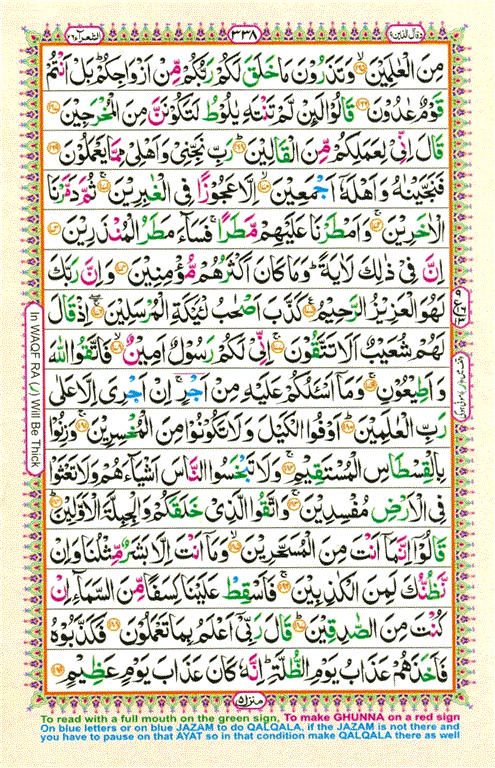 وقال الذين ١٩
٣٣٨
الشعرآء ٢٦
مِنَ الْعٰلَمِيْنَ ﴿۱۶۵﴾ وَتَذَرُوْنَ مَا خَلَقَ لَكُمْ رَبُّكُمْ مِّنْ اَزْوَاجِكُمْ ؕ بَلْ اَنْتُمْ
قَوْمٌ عٰدُوْنَ ﴿۱۶۶﴾ قَالُوْا لَئِنْ لَّمْ تَنْتَهِ يٰلُوْطُ لَتَكُوْنَنَّ مِنَ الْمُخْرَجِيْنَ ﴿۱۶۷﴾
قَالَ اِنِّيْ لِعَمَلِكُمْ مِّنَ الْقَالِيْنَ ﴿۱۶۸﴾ رَبِّ نَجِّنِيْ وَاَهْلِيْ مِمَّا يَعْمَلُوْنَ ﴿۱۶۹﴾
فَنَجَّيْنٰهُ وَاَهْلَهٗۤ اَجْمَعِيْنَ ﴿۱۷۰﴾ اِلَّا عَجُوْزًا فِي الْغٰبِرِيْنَ ﴿۱۷۱﴾ ثُمَّ دَمَّرْنَا
الْاٰخَرِيْنَ ﴿۱۷۲﴾ وَاَمْطَرْنَا عَلَيْهِمْ مَّطَرًا ۚ فَسَآءَ مَطَرُ الْمُنْذَرِيْنَ ﴿۱۷۳﴾
اِنَّ فِيْ ذٰلِكَ لَاٰيَةً ؕ وَمَا كَانَ اَكْثَرُهُمْ مُّؤْمِنِيْنَ ﴿۱۷۴﴾ وَاِنَّ رَبَّكَ
لَهُوَ الْعَزِيْزُ الرَّحِيْمُ ﴿۱۷۵﴾ كَذَّبَ اَصْحٰبُ لْئَيْكَةِ الْمُرْسَلِيْنَ ﴿۱۷۶﴾ اِذْ قَالَ
لَهُمْ شُعَيْبٌ اَلَا تَتَّقُوْنَ ﴿۱۷۷﴾ اِنِّيْ لَكُمْ رَسُوْلٌ اَمِيْنٌ ﴿۱۷۸﴾ فَاتَّقُوا اللّٰهَ
وَاَطِيْعُوْنِ ﴿۱۷۹﴾ وَمَاۤ اَسْئَلُكُمْ عَلَيْهِ مِنْ اَجْرٍ ۚ اِنْ اَجْرِيَ اِلَّا عَلٰى
رَبِّ الْعٰلَمِيْنَ ﴿۱۸۰﴾ اَوْفُوا الْكَيْلَ وَلَا تَكُوْنُوْا مِنَ الْمُخْسِرِيْنَ ﴿۱۸۱﴾ وَزِنُوْا
بِالْقِسْطَاسِ الْمُسْتَقِيْمِ ﴿۱۸۲﴾ وَلَا تَبْخَسُوا النَّاسَ اَشْيَآءَهُمْ وَلَا تَعْثَوْا
فِي الْاَرْضِ مُفْسِدِيْنَ ﴿۱۸۳﴾ وَاتَّقُوا الَّذِيْ خَلَقَكُمْ وَالْجِبِلَّةَ الْاَوَّلِيْنَ ﴿۱۸۴﴾
قَالُوْۤا اِنَّمَاۤ اَنْتَ مِنَ الْمُسَحَّرِيْنَ ﴿۱۸۵﴾ وَمَاۤ اَنْتَ اِلَّا بَشَرٌ مِّثْلُنَا وَاِنْ
نَّظُنُّكَ لَمِنَ الْكٰذِبِيْنَ ﴿۱۸۶﴾ فَاَسْقِطْ عَلَيْنَا كِسَفًا مِّنَ السَّمَآءِ اِنْ
كُنْتَ مِنَ الصّٰدِقِيْنَ ﴿۱۸۷﴾ قَالَ رَبِّيْۤ اَعْلَمُ بِمَا تَعْمَلُوْنَ ﴿۱۸۸﴾ فَكَذَّبُوْهُ
فَاَخَذَهُمْ عَذَابُ يَوْمِ الظُّلَّةِ ؕ اِنَّهٗ كَانَ عَذَابَ يَوْمٍ عَظِيْمٍ ﴿۱۸۹﴾
منزل ٥
In WAQF RA (ر) Will Be Thick
To read with a full mouth on the green sign, To make GHUNNA on a red sign
On blue letters or on blue JAZAM to do QALQALA, if the JAZAM is not there and
you have to pause on that AYAT so in that condition make QALQALA there as well